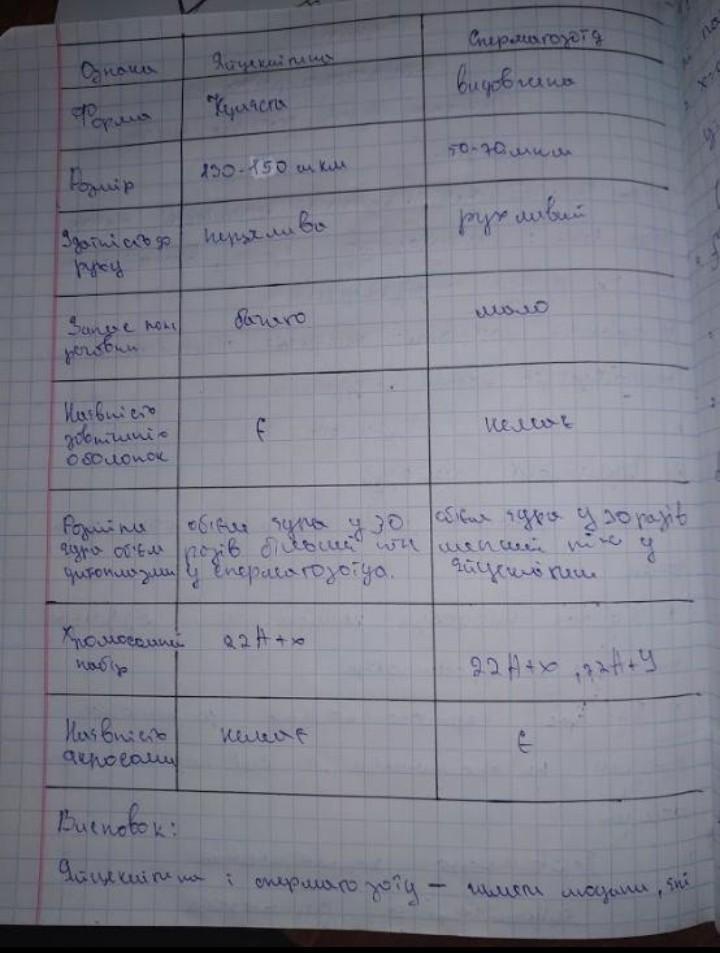 Ознака Яйцеклітина Сперматозоїд
Форма Куляста видовжена
Розмір 130-150 мкм 50-70 мкм
Здатність до нерухлива рухливий
руху
Запас пож багато мало
речовин
Наявність є немає
зовнішніх
оболонок
Розміри обїєм ядра у 30 обїєм ядра у 30 разів
ядра обїєм разів більший ніж менший ніж у
цитоплазми у сперматозоїда. яйцеклітини
Хромосомний 22А+х 22А+х, 22А+У
набір
Наявність немає є
акросоми
Висновок:
Яйцеклітина і сперматозоїд — гамети людини, які